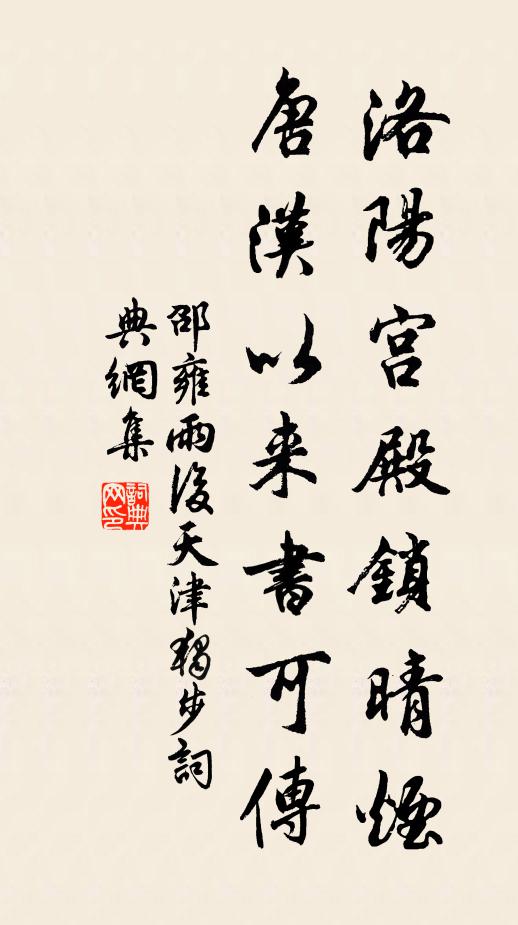 洛陽宮殿鎖晴煙
唐漢以来書可傳
邵雍雨後天津獨步詞
典網集
詞典网印